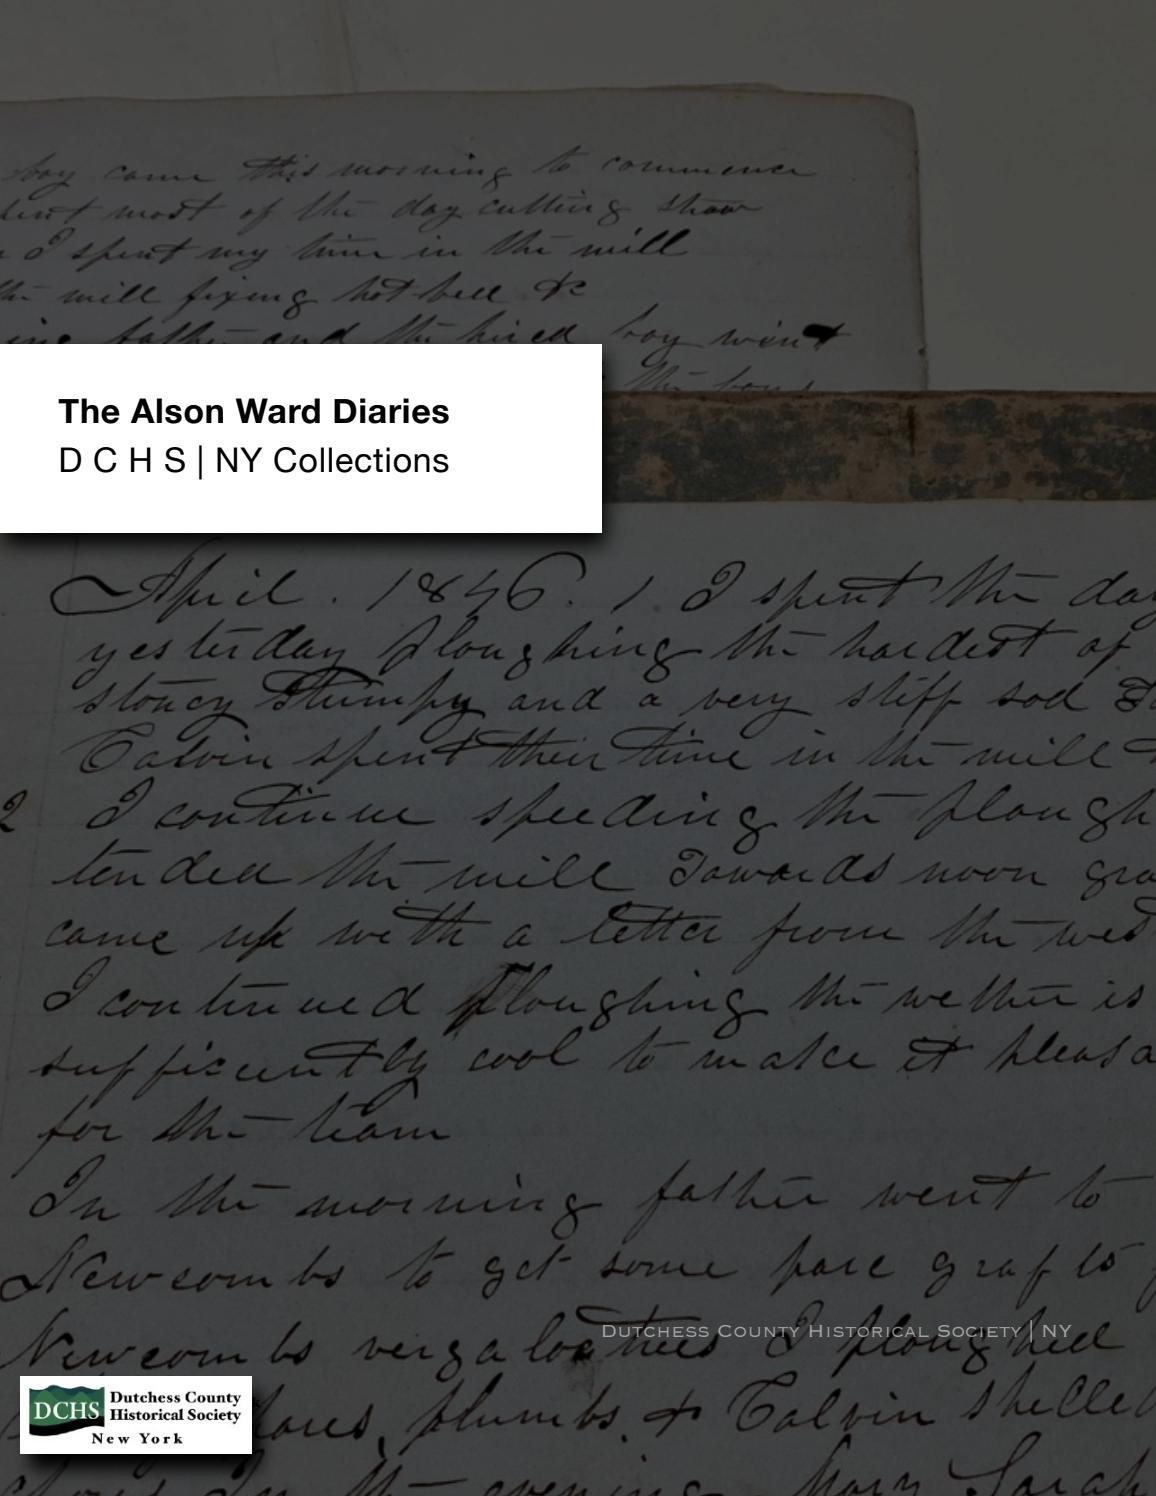 boy came this morning to commence
spent most of the day cutting straw
I spent my time in the mill
the mill fixing hot bed &c
father and the hired boy went
the boys
The Alson Ward Diaries
D C H S | NY Collections
April . 1846. 1. I spent the day
yesterday ploughing the hardest of
stoney stumpy and a very stiff sod
Calvin spent their time in the mill
2 I continue speeding the plough
tended the mill Towards noon gra
came up with a letter from the west
I continued ploughing the wether is
sufficiently cool to make it pleasa
for the team
In the morning father went to
Newcombs to get some pare grafts
Newcombs vergaloo trees I ploughed
Dutchess County Historical Society | NY
plumbs, & Calvin shelled
In the evening Mary Sarah
DCHS
Dutchess County
Historical Society
New York